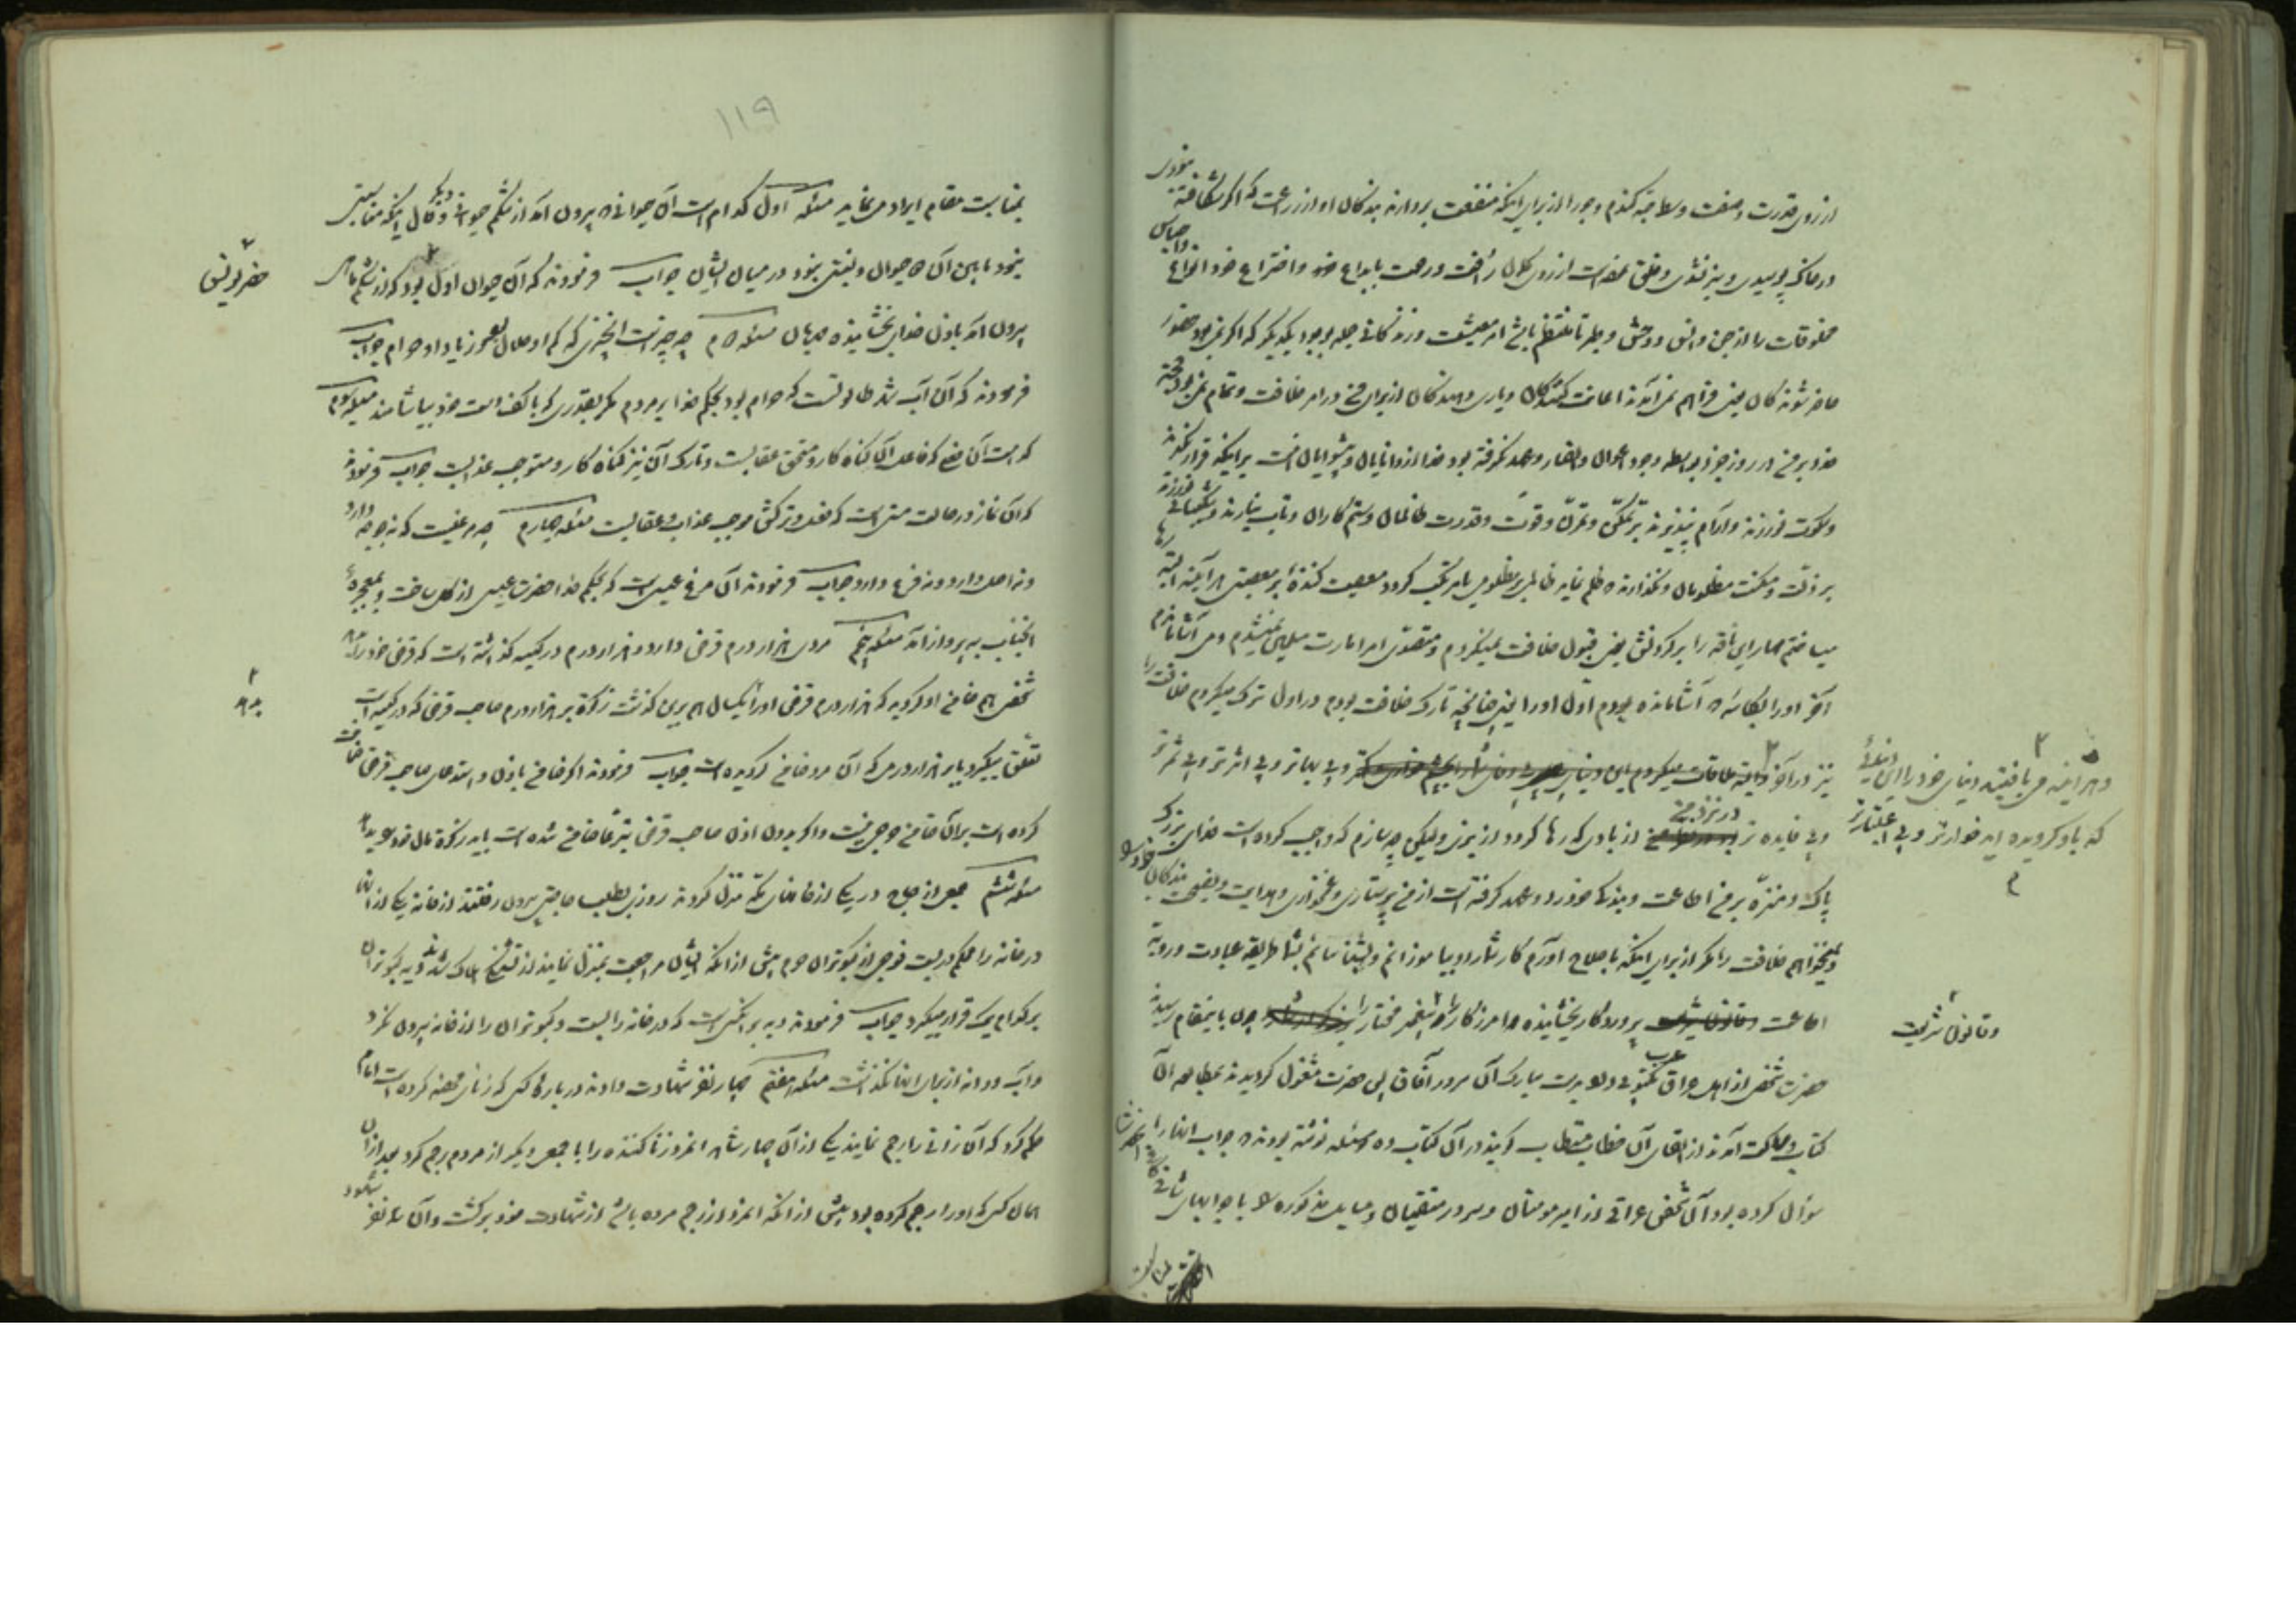 از روی قدرت و صنعت و ساخته گندم و جو را از برای اینکه منفعت بردارند بندگان او از زراعت که اگر شکافته
در خاک پوسیدی و سبز نشدی و خلق از روی کمال رأفت و رحمت بابداع خود و اختراع خود انواع و اجناس
مخلوقات را از جن و انس و وحش و طیر تا منتظم باشد امر معیشت و زندگانی جمله بوجود یکدیگر که اگر نمی بود حضور
حاضر شوندگان یعنی فراهم نمی آمدند اعانت کنندگان و یاری دهندگان از برای من در امر خلافت و تمام نمی بود حجت
خدا بر من در روز جزا بواسطه وجود اعوان و انصار و عهد نگرفته بود خدا از دانایان و پیشوایان امت بر اینکه قرار نگیرند
و سکوت نورزند و آرام نپذیرند بر تملک و تمرّن و قوت و قدرت ظالمان و ستم کاران و تاب نیارند و شکیبائی نورزند
بر ذلت و مسکنت مظلومان و نگذارند که ظلم نماید ظالم بر مظلومی یا مرتکب گردد معصیت کننده بر معصیتی هر آینه البته رها
میساختم مهار این ناقه را بر گردنش یعنی قبول خلافت نمیکردم و متصدی امر امارت مسلمین نمیشدم و می آشامانیدم
آخر او را بکاسه که آشامانده بودم اول او را یعنی چنانچه تارک خلافت بودم در اول ترک میکردم خلافت را
نیز در آخر
وهر اینه می یافتید دنیای خود را این دنیائی
که یاد کردیده اید خوارتر و بی اعتبارتر
و بی فایده تر در نزد من از بادی که رها گردد از بزی ولیکن چه سازم که واجب کرده است خدای بزرگ
پاک و منزّه بر من اطاعت و بندگی خود را و عهد گرفته است از من پرستاری و غمخواری و هدایت و نصیحت بندگان خود را
و نمیخواهم خلافت را مگر از برای اینکه باصلاح آورم کار شما را و بیاموزانم و بشناسانم بشما طریقه عبادت و رویه
اطاعت وقانون شریعت پروردگار بخشاینده و آمرزگار را پیغمبر مختار را چون باینمقام رسید
وقانون شریعت
حضرت شخصی از اهل عراق عرب مکتوبی داد بدست مبارک آن سرور آفاق پس حضرت مشغول گردیدند بمطالعه آن
کتاب و ساکت آمدند از القای آن خطاب مستطاب گویند در آن کتاب ده مسئله نوشته بودند که جواب آنها را از آنحضرت
سؤال کرده بود آن شخص عراقی از امیر مومنان و سرور متقیان و مسایل مذکوره را با جوابهای شافی کافی
۱۱۹
بمناسبت مقام ایراد مینماید مسئله اول کدام است آن حیوانی که بیرون آمد از شکم حیوان دیگر و حال اینکه مناسبتی
نبود مابین آن دو حیوان و نسبتی نبود در میان ایشان جواب فرمودند که آن حیوان اول بود که از شکم ماهی
حضرت یونس
بیرون آمد باذن خدای بخشاینده مهربان مسئله دوم چه چیز است آنچیزی که کم او حلال بود و زیاد او حرام جواب
فرمودند که آن آب نهر طالوتست که حرام بود بحکم خدا بر مردم مگر بقدری که با کف دست خود بیاشامند مسئله سوم
کدامست آن فعلی که فاعل آن گناه کار و مستحق عقابست و تارک آن نیز گناه کار و مستوجب عذابست جواب فرمودند
که آن نماز در حالت مستی است که فعل و ترکش موجب عذاب و عقابست مسئله چهارم چه مرغیست که نه جوجه دارد
و نه اصل دارد و نه فرع دارد جواب فرمودند آن مرغ عیسی است که بحکم خدا حضرت عیسی از گل ساخت و بمعجزه
آنجناب به پرواز آمد مسئله پنجم مردی هزار درم قرض دارد و هزار درم در کیسه گذاشته است که قرض خود را بدهد
شخصی هم ضامن او گردید که هزار درم قرض او را یکسال هم برین گذشت زکوة بر هزار درم صاحب قرض که در کیسه است
بدهد
تعلق میگیرد یا بر هزار درمی که آن مرد ضامن گردیده است جواب فرمودند اگر ضامن باذن و استدعای صاحب قرض ضمانت
کرده است بر آن ضامن حرجی نیست و اگر بدون اذن صاحب قرض تبرعا ضامن شده است باید زکوة مال خود بدهد
مسئله ششم جمعی از حاج در یکی از خانهای مکه منزل کردند روزی بطلب حاجتی بیرون رفتند از خانه یکی از آنها
در خانه را محکم در بست فوجی از کبوتران حرم پیش از آنکه ایشان مراجعت بمنزل نمایند از تشنگی هلاک شدند دیه کبوتران
بر کدام یک قرار میگیرد جواب فرمودند دیه بر آنکس است که در خانه را بست و کبوتران را از خانه بیرون نکرد
و آب و دانه از برای آنها نگذاشت مسئله هفتم چهار نفر شهادت دادند درباره کسی که زنای محصنه کرده است امام
حکم کرد که آن زانی را رجم نمایند یکی از آن چهار شاهد آنمرد زنا کننده را با جمعی دیگر از مردم رجم کرد بعد از آن
همان کس که او را رجم کرده بود پیش از آنکه آنمرد از رجم مرده باشد از شهادت خود برگشت و آن سه نفر شهود